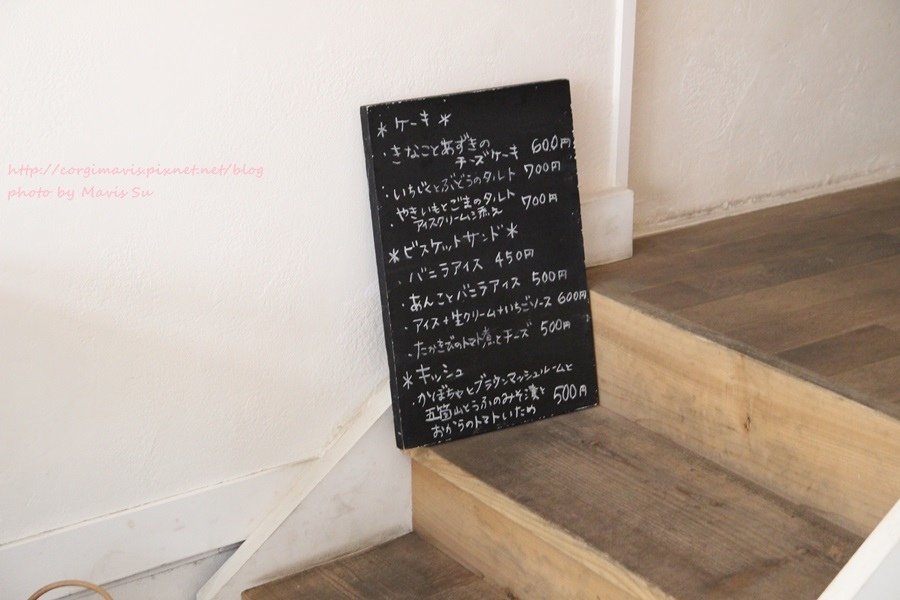 http://corgimavis.pixnet.net/blog
photo by Mavis Su
＊ケーキ＊
・きなことあずきの
チーズケーキ 600円
・いちじくとぶどうのタルト 700円
やきいもとごまのタルト 700円
アイスクリーム添え
＊ビスケットサンド＊
・バニラアイス 450円
・あんことバニラアイス 500円
・アイス＋生クリーム＋いちごソース 600円
・たかきびのトマト煮とチーズ 500円
＊キッシュ
かぼちゃとブラウンマッシュルームと
五箇山とうふのみそ漬と 500円
おからのトマトいため